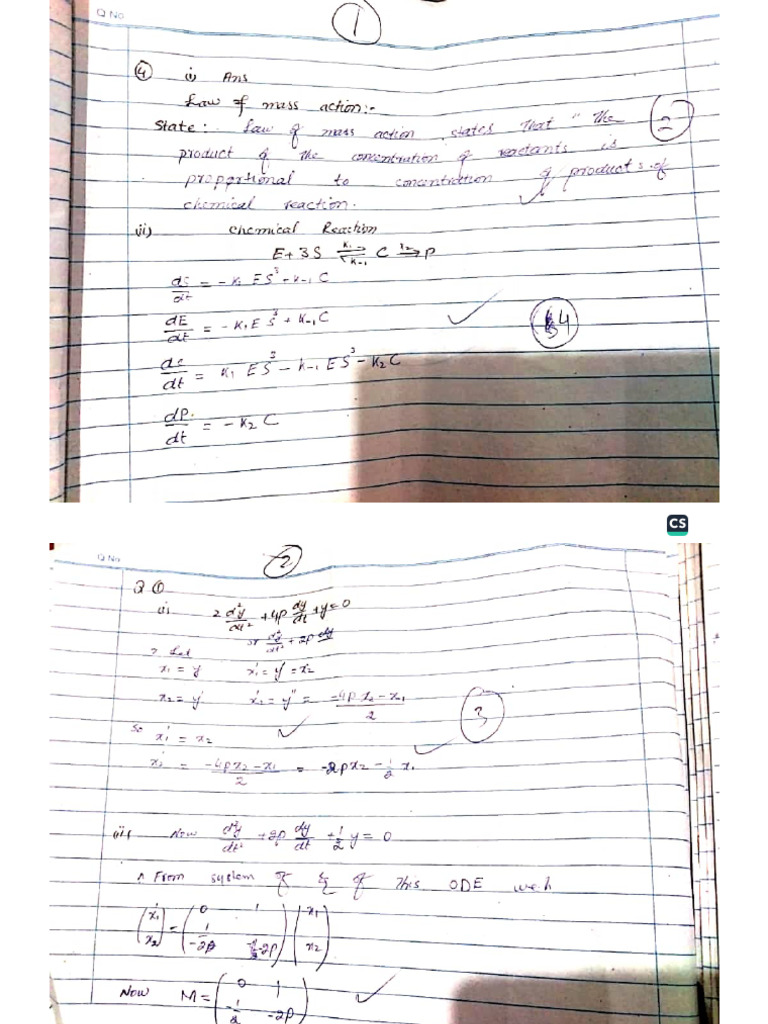 Q No.
1
④ i) Ans
Law of mass action:-
State: Law of mass action states that "the
product of the concentration of reactants is
proportional to concentration of products of
chemical reaction.
ii) Chemical Reaction
E + 3S ⇌ C → P
k₁ k₋₁ k₂
dS/dt = -k₁ E S³ + k₋₁ C
dE/dt = -k₁ E S³ + k₋₁ C
4
dc/dt = k₁ E S³ - k₋₁ E S³ - k₂ C
dP/dt = -k₂ C
CS
Q No.
2
Q ①
i) 2 d²y/dt² + 4p dy/dt + y = 0
d²y/dt² + 2p dy
Let
x₁ = y x₁' = y' = x₂
x₂ = y' x₂' = y'' = (-4p x₂ - x₁)/2
3
so x₁' = x₂
x₂' = (-4px₂ - x₁)/2 = -2px₂ - 1/2 x₁
ii) Now d²y/dt² + 2p dy/dt + 1/2 y = 0
From system of of This ODE
(x₁' x₂) = (0 1 -2p) (x₁ x₂)
Now M = (0 1 -1/2 -2p)